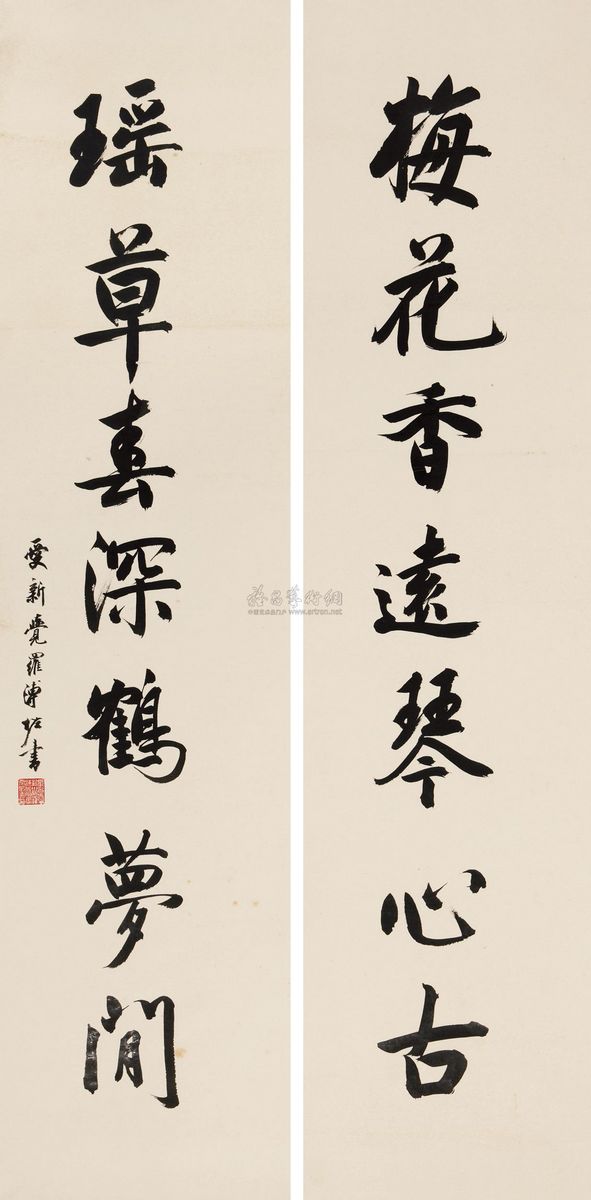 梅花香遠琴心古
瑶草春深鶴夢閒
愛新覺羅溥佐書
雅昌藝術網
www.artron.net